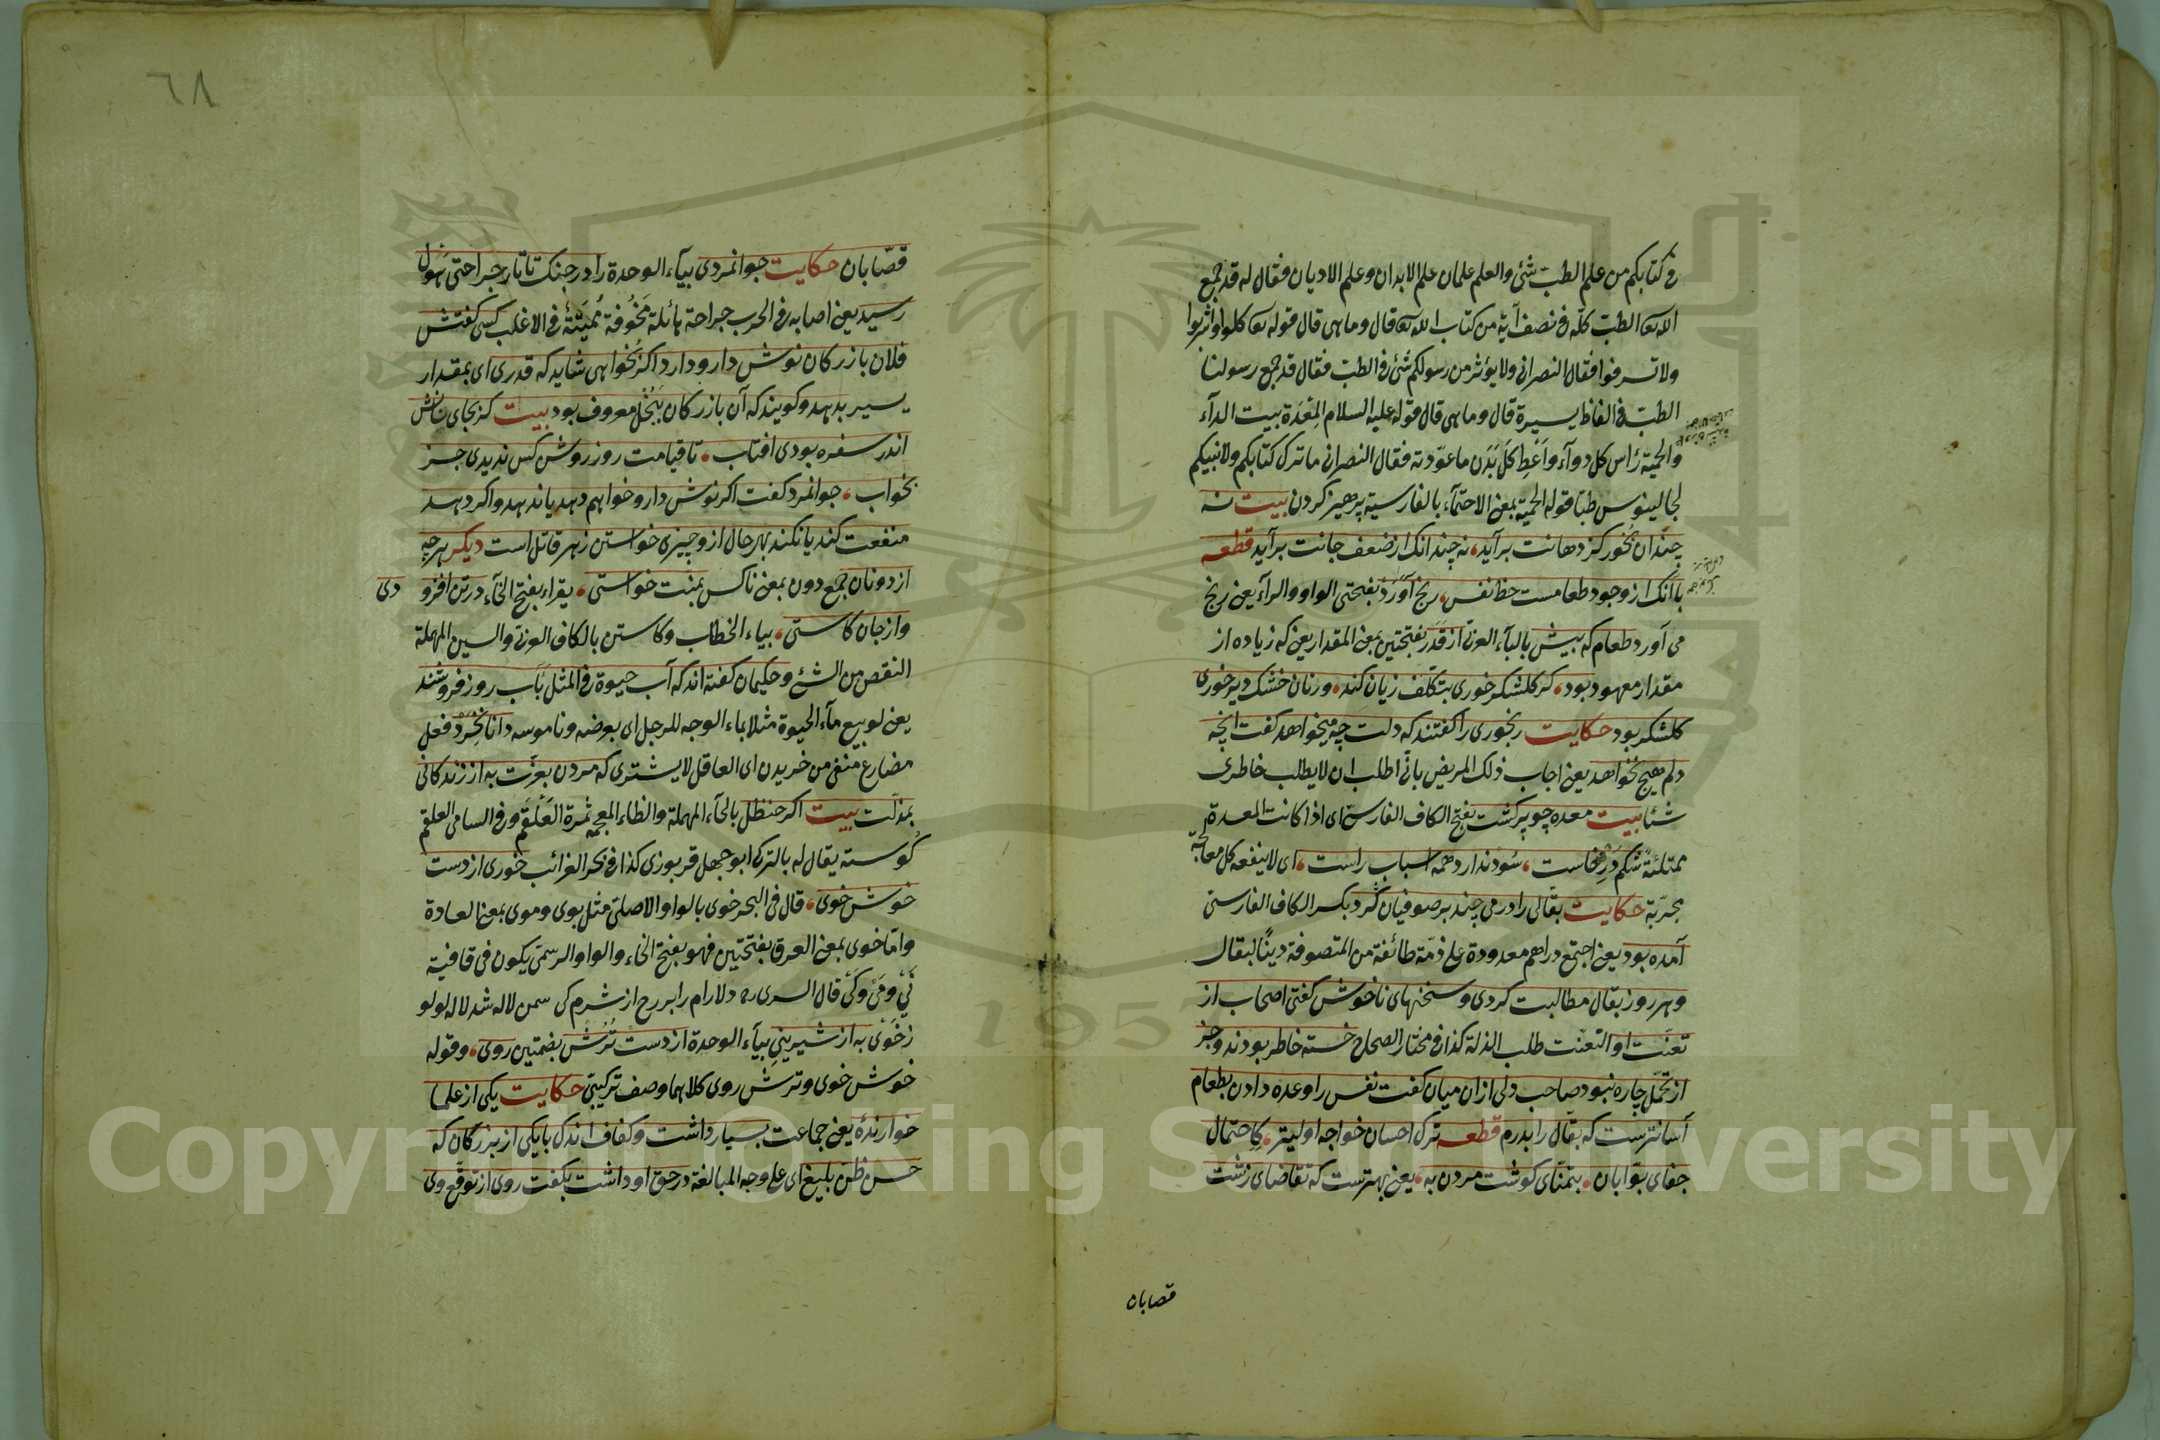 فى كتابكم من علم الطب شئ والعلم علمان علم الابدان وعلم الاديان فقال له قد جمع
الله تعا الطب كلّه فى نصف آية من كتاب الله تعا قال وما هى قال قوله تعا كلوا واشربوا
ولا تسرفوا فقال النصرانى ولا يؤثر من رسولكم شئ فى الطب فقال قد جمع رسولنا
الطب فى الفاظ يسيرة قال وما هى قال قوله عليه السلام المِعْدَة بيت الدآء
والحمية رأس كل دوآء وَاَعْطِ كلَّ بَدَن ما عوّدته فقال النصرانى ما ترك كتابكم ولا نبيكم
لجالينوس طبا قوله الحمية بمعنى الاحتمآء بالفارسية پرهيز كردن بيت نه
چندان بخور كز دهانت برآيد نه چندانك از ضعف جانت برآيد قطعه
با آنك از وجود طعامست حظ نفس رنج آوَرَدْ بفتحتى الواو والرآء يعنى رنج
مى آورد طعام كه بيش بالبآء العربى از قَدَر بفتحتين بمعنى المقدار يعنى كه زياده از
مقدار معهود بود كر كلشكر خورى بتكلف زيان كند ور نان خشك دير خورى
كلشكر بود حكايت رنجورى را كفتند كه دلت چه ميخواهد كفت آنچه
دلم هيچ نخواهد يعنى اجاب ذلك المريض بانّى اطلب ان لا يطلب خاطرى
شئا بيت معده چو پركشت بفتح الكاف الفارسى اى اذا كانت المعدة
ممتلئة شكم درد خاست سود ندارد همه اسباب راست اى لا ينفعه كل معالجة
مجرّبة حكايت بقّالى را درمى چند بر صوفيان كِرد بكسر الكاف الفارسى
آمده بود يعنى اجتمع دراهم معدودة على ذمّة طائفة من المتصوفة دينًا لبقال
وهر روز بقال مطالبت كردى وسخنهاى ناخوش كفتى اصحاب از
تعنّت او التعنّت طلب الذلة كذا فى مختار الصحاح خسته خاطر بودند وجز
از تحمّل چاره نبود صاحب دلى ازان ميان كفت نفس را وعده دادن بطعام
آسانترست كه بقّال را بدرم قطعه ترك احسان خواجه اوليتر كاحتمال
جفاى بوّابان بتمنّاى كوشت مردن به يعنى بهترست كه تقاضاى زشت
قصابان
٦٨
قصّابان حكايت جوانمردى بيآء الوحدة را در جنك تاتار جراحتى هَوْل
رسيد يعنى اصابه فى الحرب جراحة هائلة مَخُوفة مُميتَة فى الاغلب كسى كفتش
فلان بازركان نوش دارو دارد اكر بخواهى شايد كه قدرى اى بمقدار
يسير بدهد وكويند كه آن بازركان ببُخْل معروف بود بيت كر بجاى نانش
اندر سفره بودى افتاب تا قيامت روز روشن كس نديدى جز
بخواب جوانمرد كفت اكر نوش دارو خواهم دهد يا ندهد واكر دهد
منفعت كند يا نكند بهر حال ازو چيزى خواستن زهر قاتل است ديكر هرچه
از دونان جمع دون بمعنى ناكس بمنّت خواستى يقراء بفتح الخآء در تن افزو دى
واز جان كاستى بيآء الخطاب وكاستن بالكاف العربى والسين المهملة
النقص من الشئ وحكيمان كفته اند كه آب حيوة فى المثل بآب روز فروشند
يعنى لو بيع مآء الحيوة مثلا بماء الوجه للرجل اى بعرضه وناموسه دانا نخَرَد فعل
مضارع منفى من خريدن اى العاقل لا يشترى كه مردن بعزّت به از زندكانى
بمذلّت بيت اكر حنظل بالحآء المهملة والظاء المعجمة ثمرة العَلْقَم وفى السامى العلقم
كُوسته يقال له بالتركى ابو جهل قربوزى كذا فى بحر الغرائب خورى از دست
خوش خوى قال فى البحر خوى بالواو الاصلى مثل بوى وموى بمعنى العادة
وامّا خوى بمعنى العرق بفتحتين فهو بفتح الخاء والواو الرسمى يكون فى قافية
نَىْ ومَىْ وكَىْ قال السرى ره دلارام را بر رخ از شرم كى سمن لاله شد لاله لولو
زخَوْى به از شيرينى بيآء الوحدة از دست تُرُش بضمتين روى وقوله
خوش خوى وترش روى كلاهما وصف تركيبى حكايت يكى از علما
خوارنده يعنى جماعت بسيار داشت وكفاف اندك با يكى از بزركان كه
حسن ظن بليغ اى على وجه المبالغة در حق او داشت بكفت روى از توقّع وى